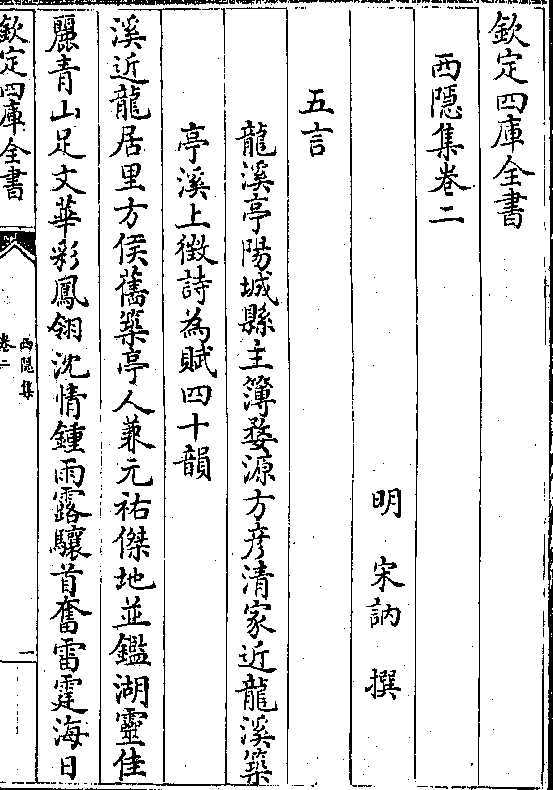 欽定四庫全書
西隠集卷二
明 宋訥 撰
五言
龍溪亭陽城縣主簿婺源方彦清家近龍溪築
亭溪上徴詩為賦四十韻
溪近龍居里方侯舊築亭人兼元祐傑地並鑑湖靈佳
麗青山足文華彩鳳翎沈情鍾雨露驤首奮雷霆海日
欽定四庫全書
西隠集
卷二
一